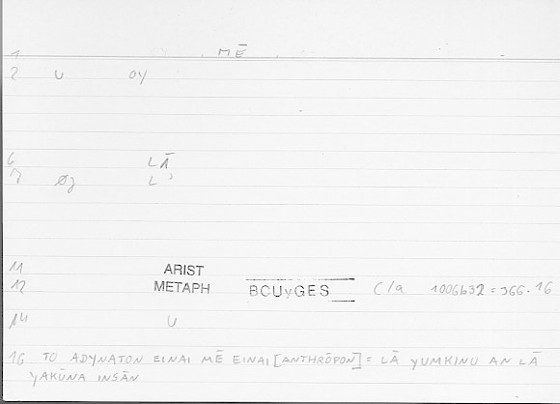 1 MĒ
2 U OY
6 LĀ
7 Øg L'
11 ARIST
12 METAPH BCUyGES C/a 1006b32 = 366.16
14 U
16 TO ADYNATON EINAI MĒ EINAI [ANTHRŌPON] = LĀ YUMKINU AN LĀ
YAKŪNA INSĀN